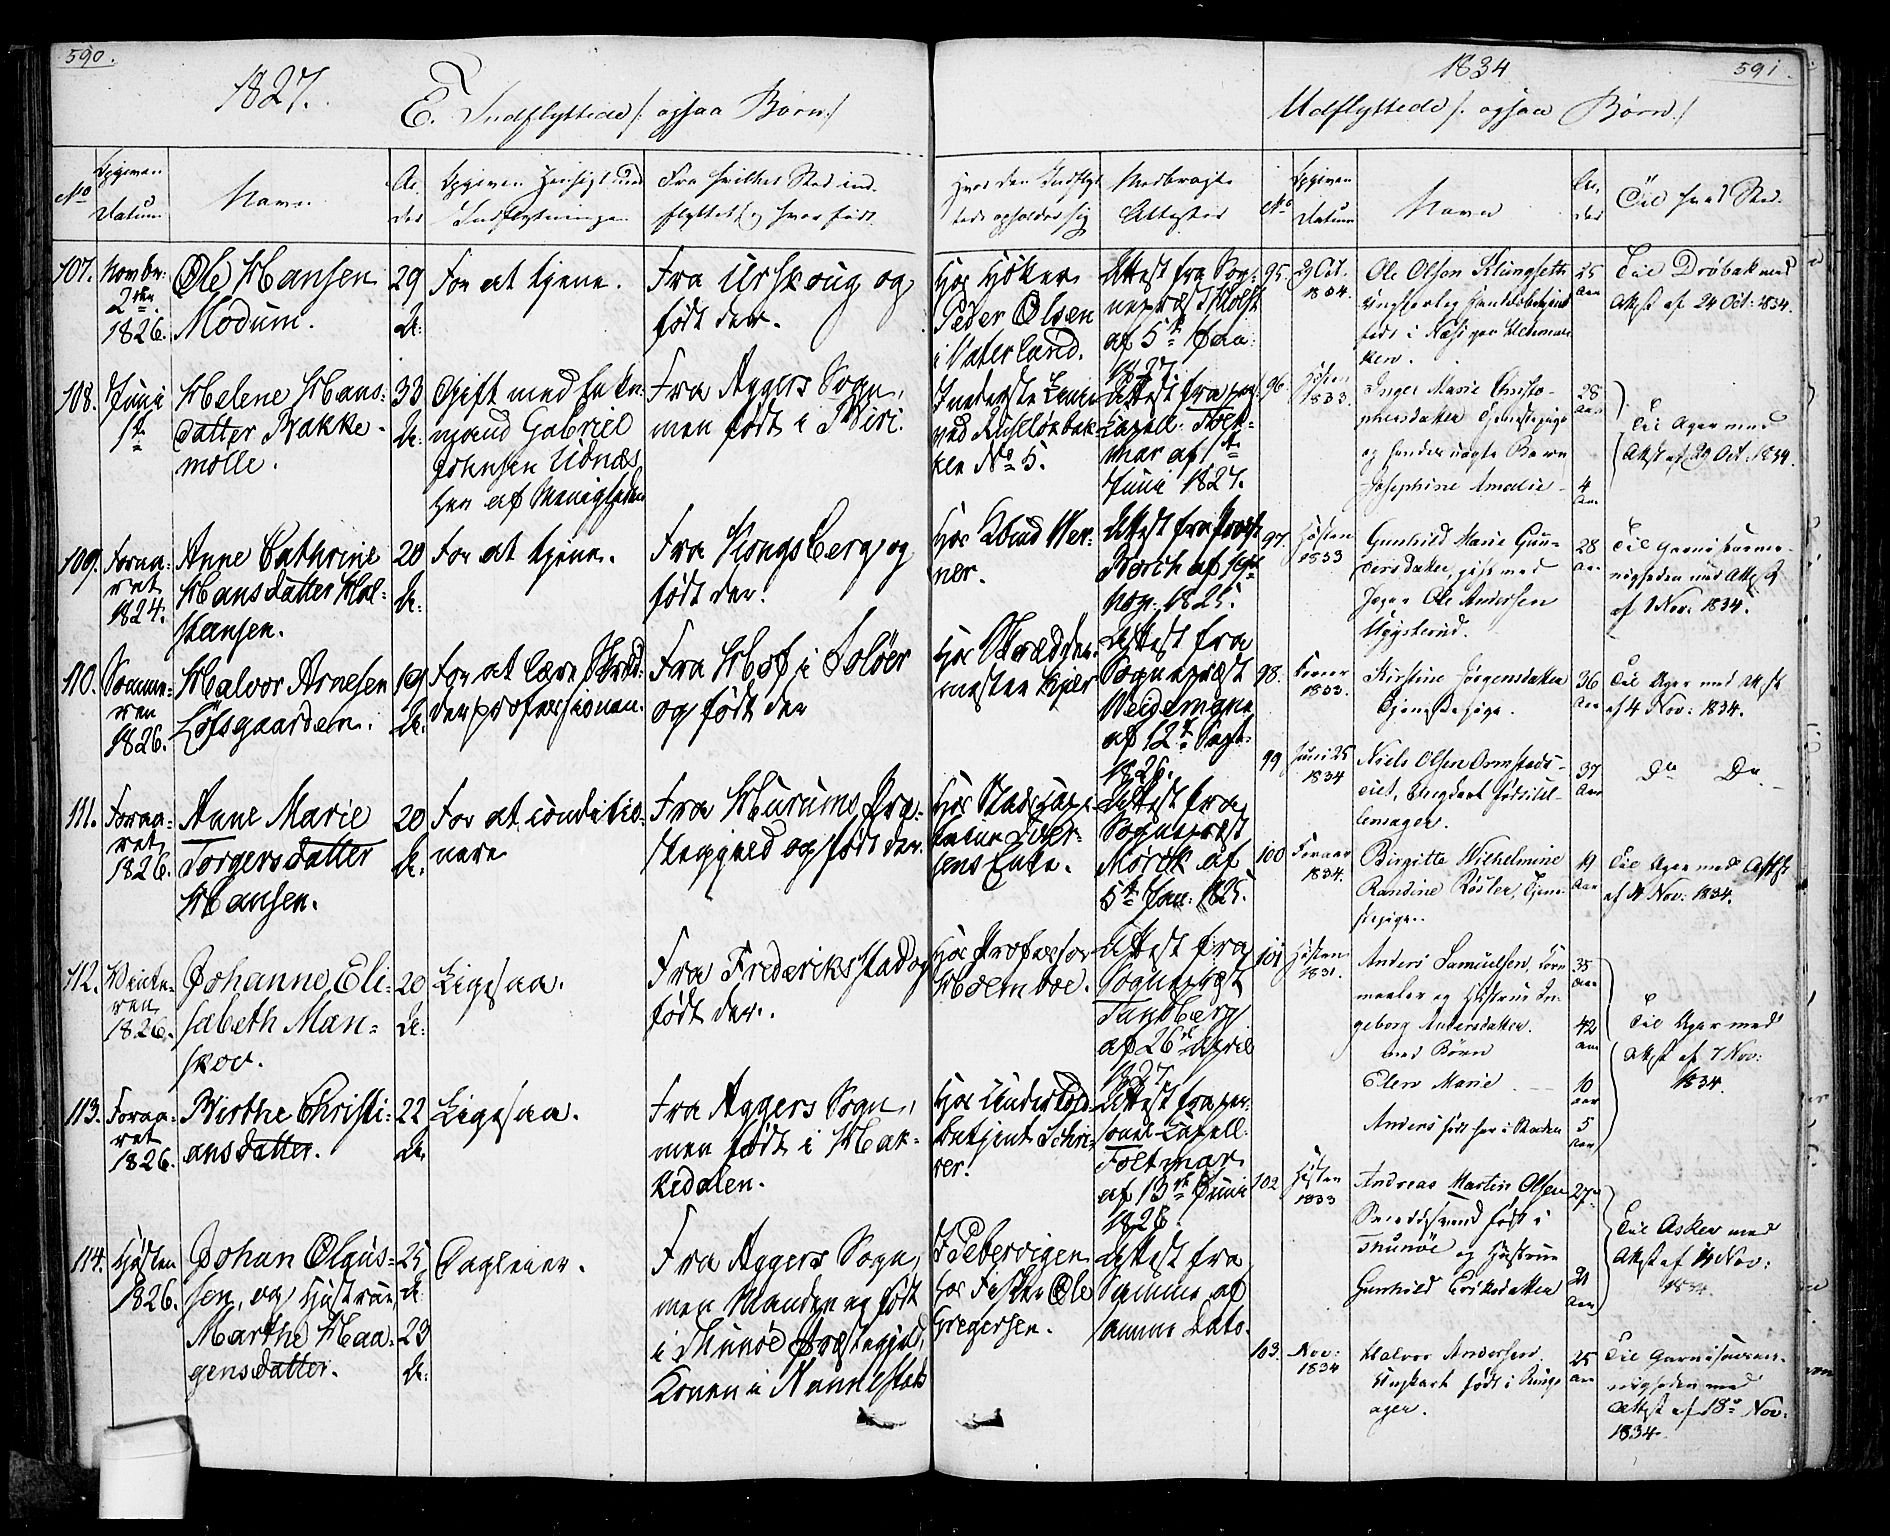 590.
1827.
E. Indflyttede /: ogsaa Børn :/
No
Opgiven Datum
Navn
Al-
der
Opgiven Hensigt med
Indflytningen
Fra hvilket Sted ind-
flyttet og hvor født
Hvor den Indflyt-
tede opholder sig
Medbragte
Attester
107.
Novbr:
2den
1826.
Ole Hansen
Modum.
29
A:
For at tjene.
Fra Urskoug og
født der.
Hos Høker
Peder Olsen
i Vaterland.
Attest fra Sog-
nepræst Holst
af 5te
1827.
108.
Juni
1te
Helene Hans-
datter Bakke-
mølle.
33
A:
Gift med Enke-
mand Gabriel
Johnsen Udnæs
her af Menigheden
Fra Aggers Sogn,
men født i Biri.
Inderste
ved Ruseløkbak-
ken No 5.
Attest fra pers.
Capell. Folt-
mar af 1te
Juni 1827.
109.
Foraa-
ret
1824.
Anne Cathrine
Hansdatter Hal-
stensen.
20
A:
For at tjene.
Fra Kongsberg og
født der.
Hos Knud Wer-
ner.
Attest fra Provst
1825.
110.
Somme-
ren
1826.
Halvor Arnesen
Løfsgaarden.
19
A:
For at lære Skræd-
derprofessionen.
Fra Hof i Soløer
og født der
Hos Skrædder-
mester Kjær
Attest fra
Sognepræst
Weidemann
af 12te Sept:
1826.
111.
Foraa-
ret
1826.
Anne Marie
Torgersdatter
Hansen.
20
A:
For at conditio-
nere
Fra Hurums Præ-
stegjeld og født der.
Hos Stadscapi-
tain
sens Enke.
Attest fra
Sognepræst
Mørck af
5te Jan: 1825.
112.
Vinte-
ren
1826.
Johanne Eli-
sabeth Man-
skov.
20
A:
Ligesaa.
Fra Frederiksstad og
født der.
Hos Professor
Holmboe.
Attest fra
Sognepræst
Tandberg
af 26de April
1827.
113.
Foraa-
ret
1826.
Birthe Christi-
ansdatter.
22
A.
Ligesaa.
Fra Aggers Sogn,
men født i Hak-
kedalen.
Hos Undertold-
betjent Schri-
ver.
Attest fra per-
sonel Capell:
Foltmar
af 13de Juni
1826.
114.
Høsten
1826.
Johan Olaus-
sen, og Hustrue,
Marthe Haa-
gensdatter.
25
A:
23
A:
Dagleier.
Fra Aggers Sogn,
men Manden og født
i Thunøe Præstegjeld,
Konen i Nannestad
I Pebervigen
hos Fisker Ole
Gregersen.
Attest fra
Samme af
samme Dato.
1834
591.
Udflyttede /: ogsaa Børn :/
No
Opgiven
Datum
Navn
Al-
der
Til hvad Sted.
95.
Oct.
1834.
Ole Olsen Klungseth
født i
25
Aar
Til Drøbak med
Attest af 24 Oct: 1834.
96.
Høsten
1833.
Inger Marie Christo-
phersdatter Tjenestepige
og hendes uægte Barn
Josephine Amalie
28
Aar
4
Aar
Til Ager med
Attest af 29 Oct: 1834.
97.
Høsten
1833
Gunhild Marie Gun-
dersdatter, gift med
Ole Andersen
28
Aar
Til Garnisonsme-
nigheden med Attest
af 1 Nov: 1834.
98.
1833.
Kirstine Jørgensdatter
Tjenestepige.
36
Aar
Til Ager med Attest
af 4 Nov: 1834.
99
Juni 25
1834
Niels Olsen Ormstads-
37
Aar
Do Do
100
Foraar
1834.
Birgitte Wilhelmine
Randine Røsler, Tjene-
stepige.
19
Aar
Til Ager med Attest
af 4 Nov: 1834.
101
Høsten
1831.
Anders Samuelsen,
maaler og Hustrue In-
geborg Andersdatter.
med Børn
Elen Marie
Anders født her i Staden
35
Aar
42
Aar
10
Aar
5
Aar
Til Ager med
Attest af 7 Nov:
1834.
102
Høsten
1833
Andreas Martin Olsen
Smedesvend født i
Thunøe og Hustrue
Gunhild Eriksdatter
27
21
Aar
Til Asker med
Attest af 14 Nov:
1834.
103.
Nov:
1834
Halvor Andersen
Ungkarl født i Ringe-
ager.
25
Aar
Til Garnisonsme-
nigheden med
Attest af 18de Nov:
1834.